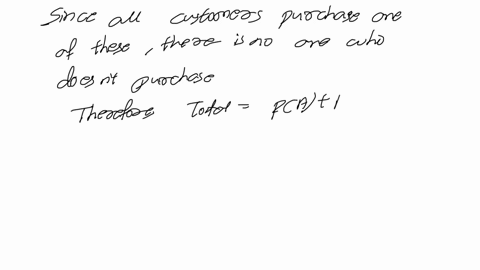 Since all customers purchase one
of these, there is no one who
doesn't purchase
Therefore Total = P(A) + 1